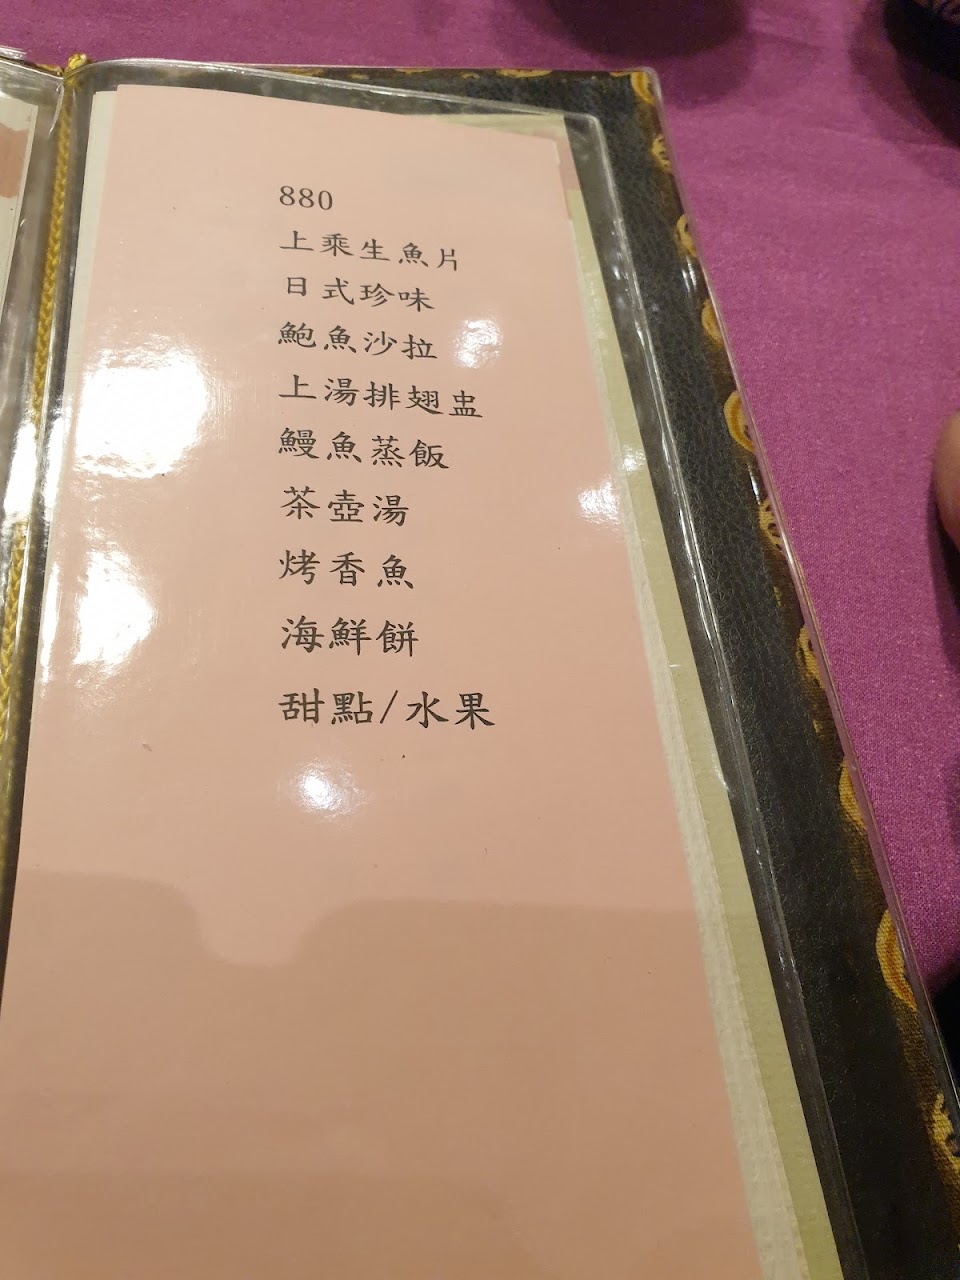 880
上乘生魚片
日式珍味
鮑魚沙拉
上湯排翅盅
鰻魚蒸飯
茶壺湯
烤香魚
海鮮餅
甜點/水果